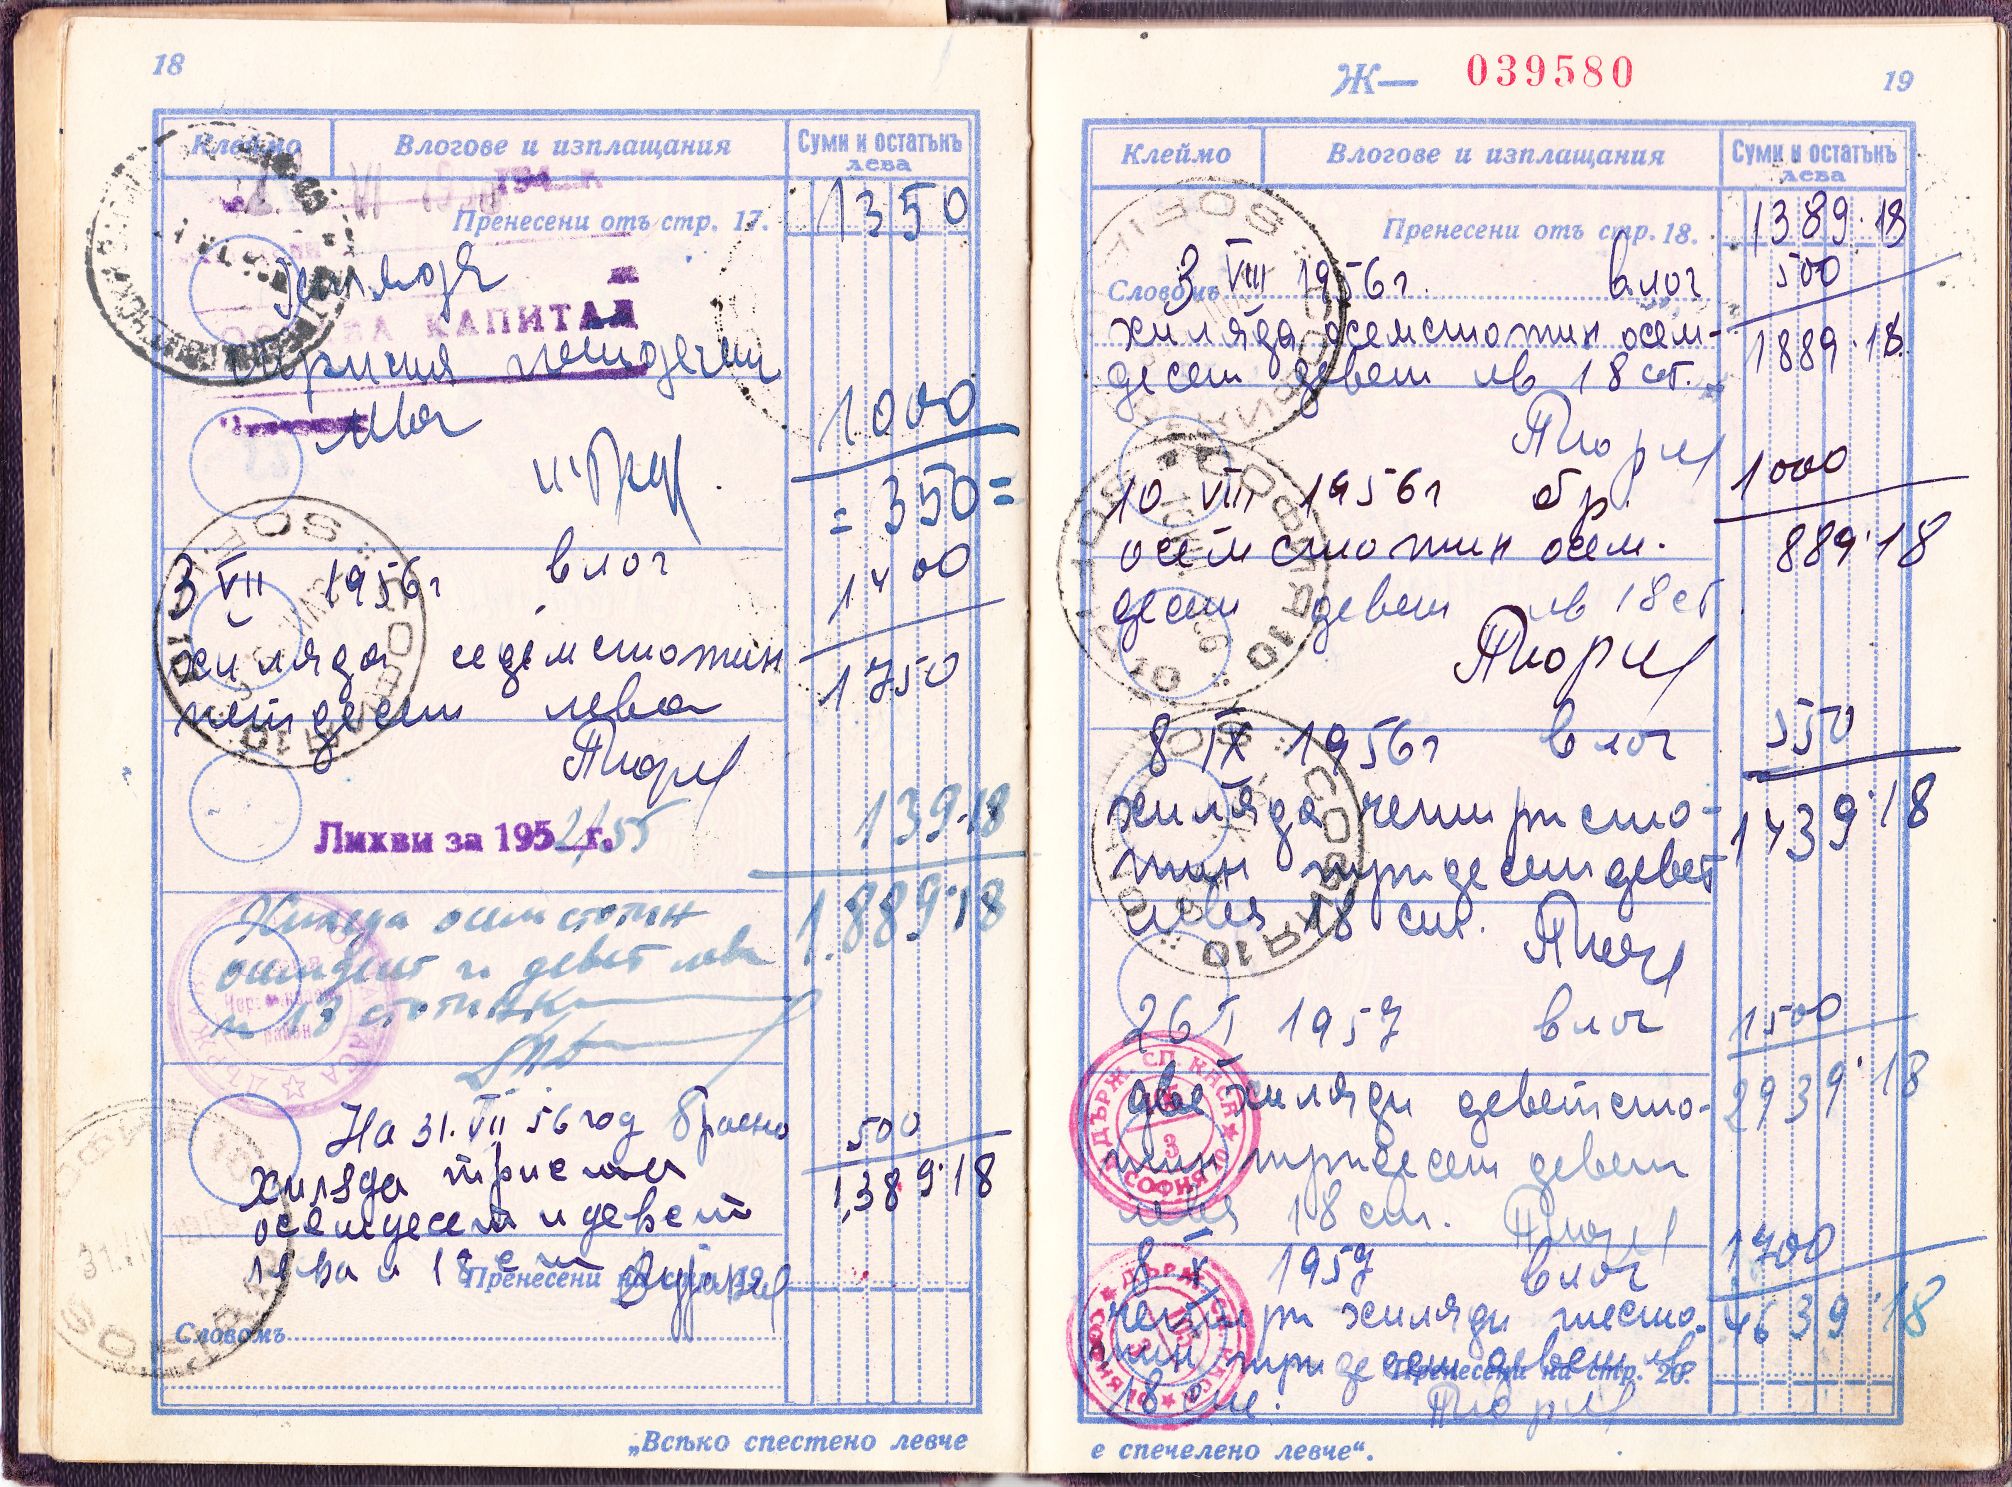 18
Клеймо
Влогове и изплащания
Суми и остатъкъ
лева
194 г.
Пренесени отъ стр. 17.
1350
Хиляда
КАПИТАЛ
триста петдесет
лева
1000
= 350 =
3 VII 1956 г влог
1400
хиляда седемстотин
1750
петдесет лева
Лихви за 195 2/55 г.
139.18
Хиляда осемстотин
1.889.18
осемдесет и девет лева
и 18 стотинки
На 31. VII 56 год броено
500
хиляда триста
1389.18
осемдесет и девет
лева и 18 ст
Пренесени на стр. 19.
Словомъ
„Всѣко спестено левче
Ж— 039580
19
Клеймо
Влогове и изплащания
Суми и остатъкъ
лева
Пренесени отъ стр. 18.
1389.18
Словомъ
3 VIII 1956 г. влог
500
хиляда осемстотин осем-
1889.18
десет девет лв 18 ст.
10 VIII 1956 г бр.
1000
осемстотин осем-
889.18
десет девет лв 18 ст
8 IX 1956 г влог
550
хиляда четиристо-
1439.18
тин тридесет девет
лева 18 ст.
26 I 1957 влог
1500
две хиляди деветсто-
2939.18
тин тридесет девет
лева 18 ст.
ДЪРЖ. СП. КАСА
3
СОФИЯ 10
8 X 1957 влог
1700
четири хиляди шесто-
4639.18
тин тридесет девет лв
Пренесени на стр. 20.
18 ст.
е спечелено левче“.